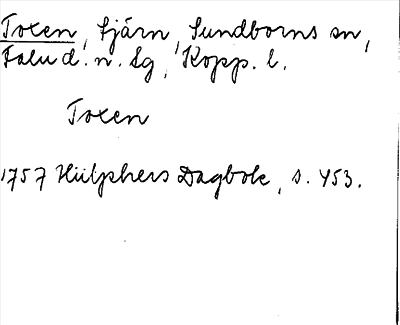 Toxen, tjärn, Sundborns sn,
Falu d. n. lg, Kopp. l.
Toxen
1757 Hülphers Dagbok, s. 453.